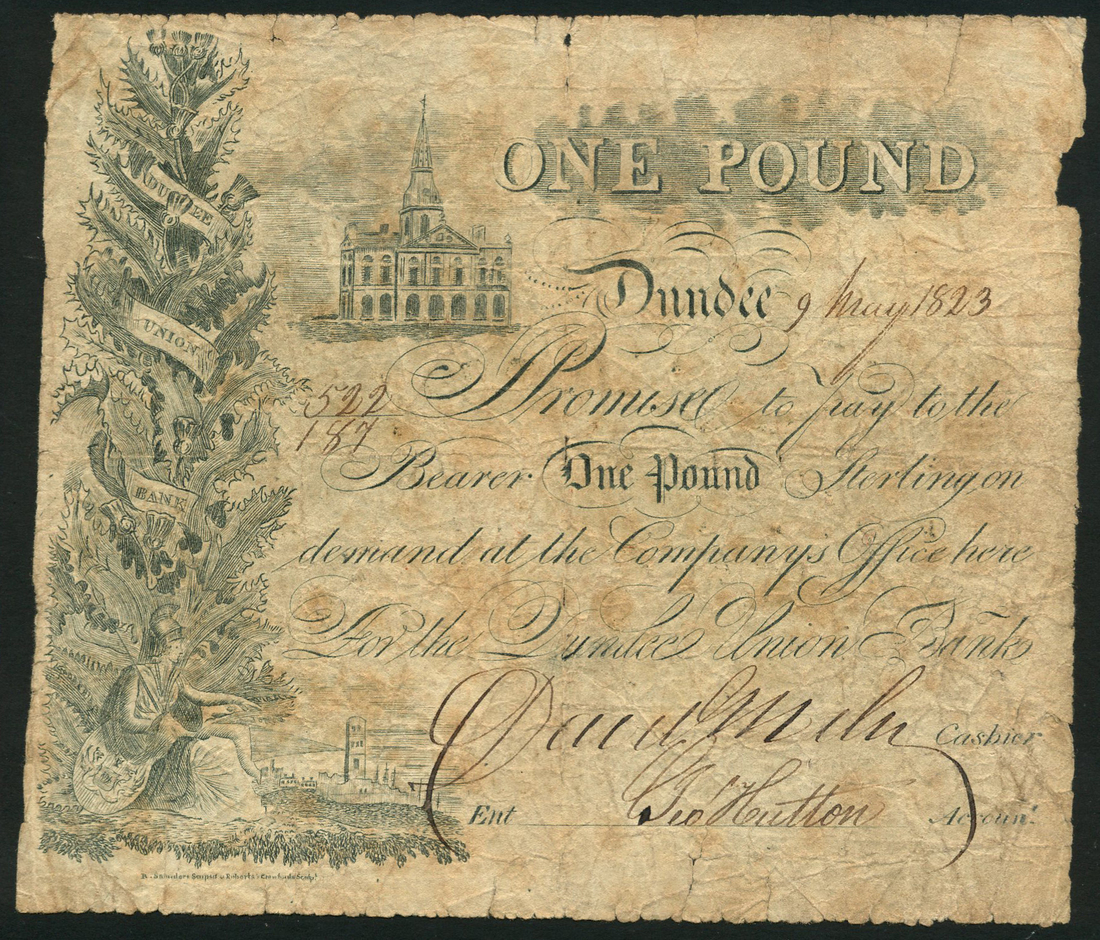 DUNDEE
UNION
BANK
ONE POUND
Dundee 9 May 1823
522
187
I Promise to pay to the
Bearer One Pound Sterling on
demand at the Company's Office here
For the Dundee Union Bank
David Miln Cashier
Ent Geo Hutton Account